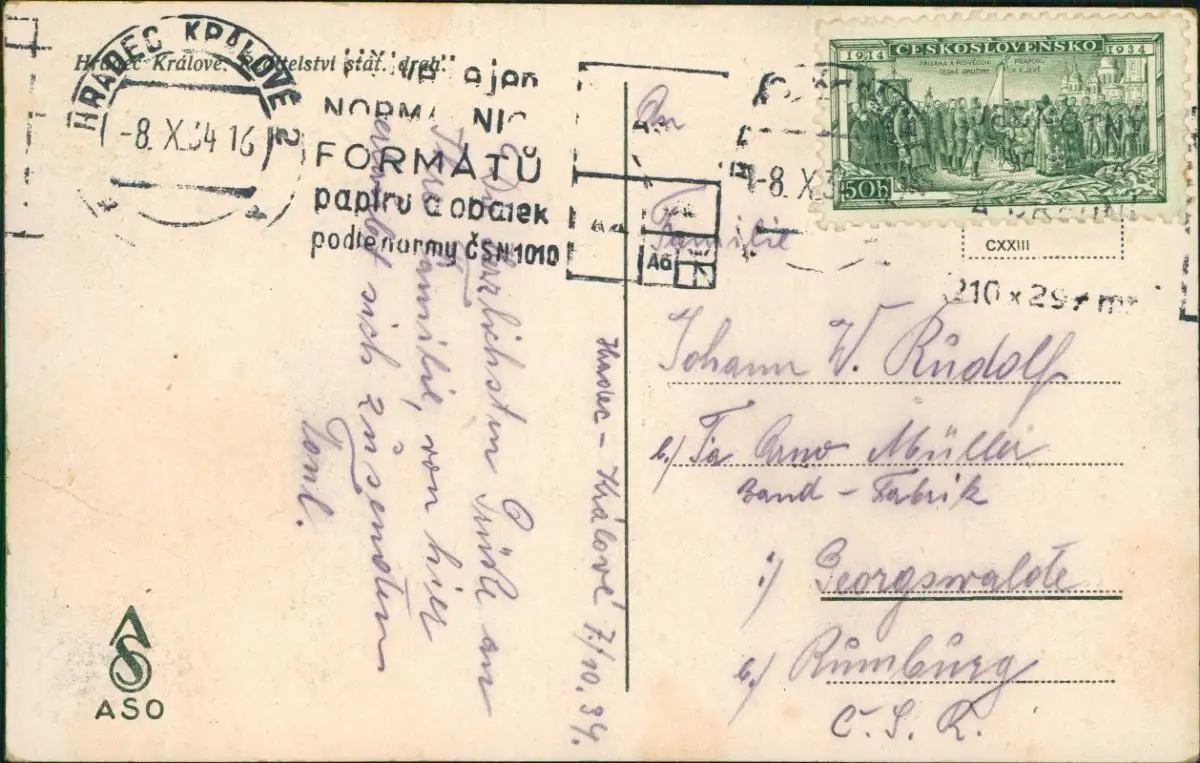 Hradec Králové. Ředitelství stát. drah.
HRADEC KRÁLOVÉ 2
-8.X.34 16
NORMA NIC
FORMÁTŮ
papíru a obálek
podle normy ČSN 1010
A4
A6
-8.X.3
210 x 297 m
1914 ČESKOSLOVENSKO 1934
PŘÍSAHA A POSVĚCENÍ PRAPORU
ČESKÉ DRUŽINY V KYJEVĚ
50h
CXXIII
Hradec-Králové 7./10.34.
Die herzlichsten Grüße an
Familie, von hier
sich zu senden
Toni.
An
Familie
Johann W. Rudolf
b./ Fa Arno Müller
Band-Fabrik
i./ Georgswalde
b./ Rumburg
Č.S.R.
ASO